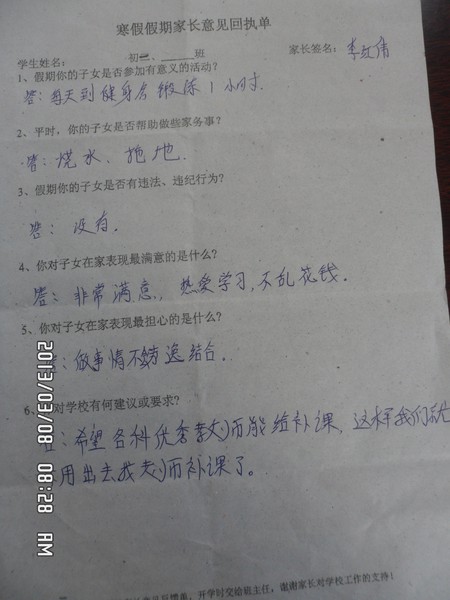 寒假假期家长意见回执单
学生姓名： 初二、_____班 家长签名：
1、假期你的子女是否参加有意义的活动？
答：每天到健身房锻练1小时.
2、平时，你的子女是否帮助做些家务事？
答：烧水、拖地.
3、假期你的子女是否有违法、违纪行为？
答：没有.
4、你对子女在家表现最满意的是什么？
答：非常满意，热爱学习，不乱花钱.
5、你对子女在家表现最担心的是什么？
答：做事情不 逸结合.
6、 对学校有何建议或要求？
答：希望各科优秀老师能给补课，这样我们就
用出去找老师补课了。
开学时交给班主任，谢谢家长对学校工作的支持！
2013/03/08 08:28 AM